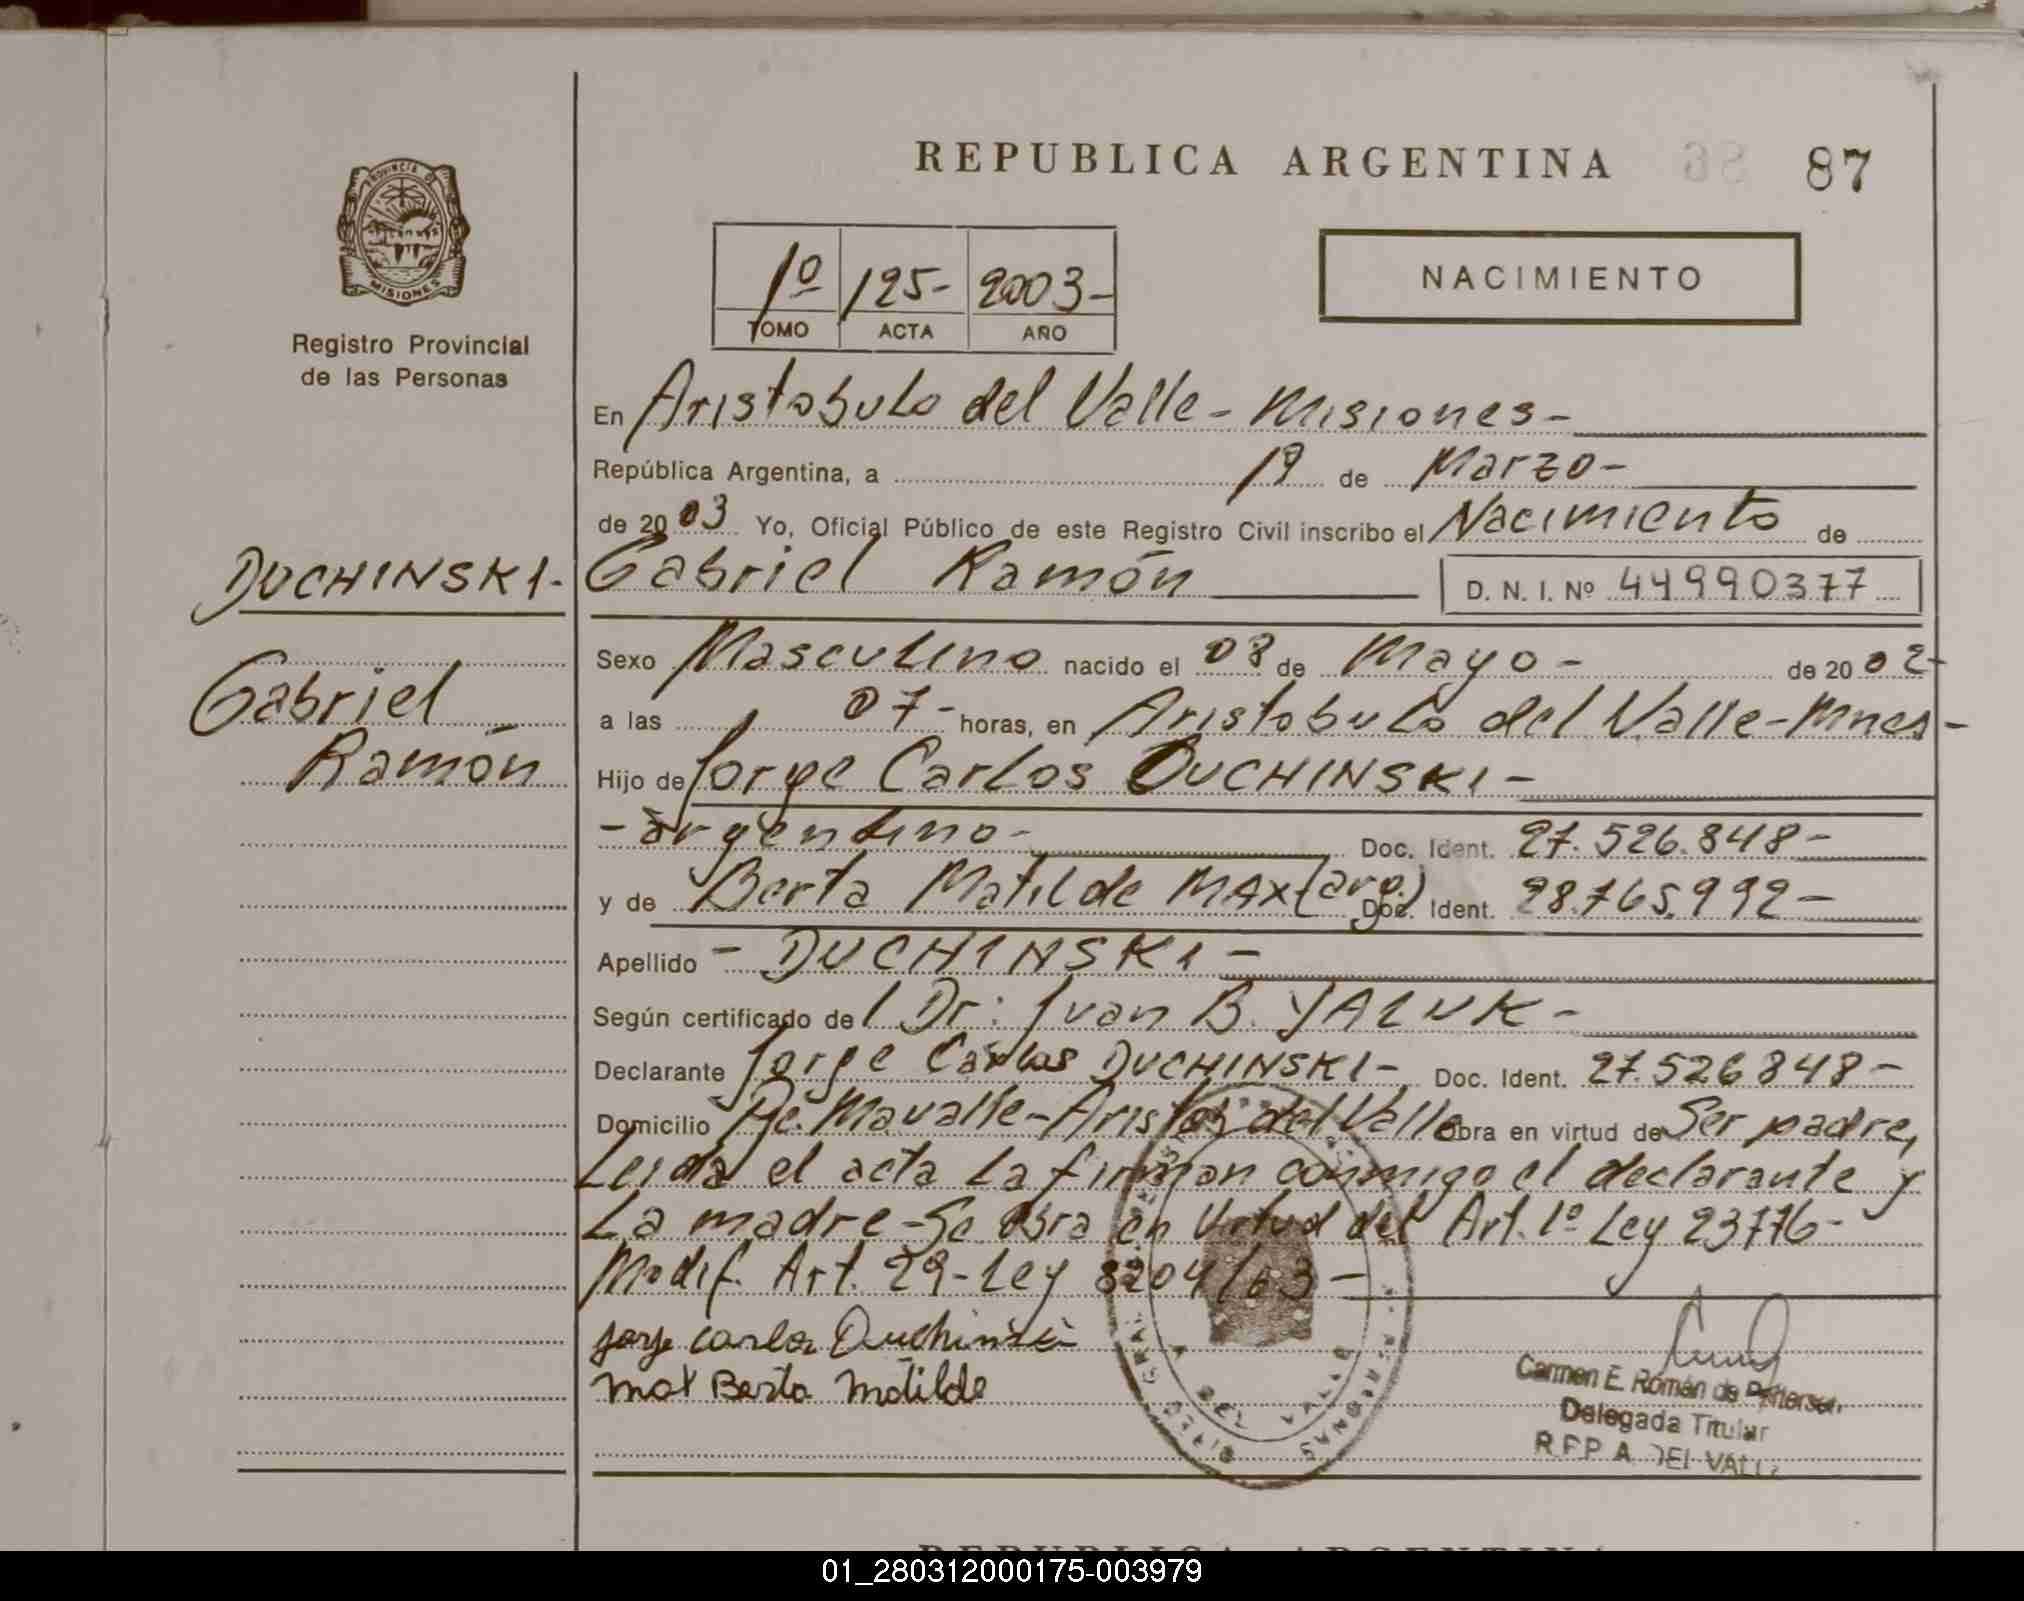 REPUBLICA ARGENTINA 87
PROVINCIA DE
MISIONES
Registro Provincial
de las Personas
1º 125- 2003-
TOMO ACTA AÑO
NACIMIENTO
En Aristobulo del Valle - Misiones -
República Argentina, a 19 de Marzo -
de 2003 Yo, Oficial Público de este Registro Civil inscribo el Nacimiento de
DUCHINSKI-
Gabriel Ramón D. N. I. Nº 44990377
Gabriel
Ramón
Sexo Masculino nacido el 08 de Mayo - de 2002-
a las 07- horas, en Aristobulo del Valle - Mnes -
Hijo de Jorge Carlos DUCHINSKI -
- argentino - Doc. Ident. 27.526.848 -
y de Berta Matilde MAX (arg.) Doc. Ident. 28.765.992 -
Apellido - DUCHINSKI -
Según certificado del Dr: Ivan B. YALUK -
Declarante Jorge Carlos DUCHINSKI - Doc. Ident. 27.526848 -
Domicilio Pje. Mavalle - Aristob del Valle obra en virtud de Ser padre,
Leida el acta la firman conmigo el declarante y
La madre - Se obra en Virtud del Art. 1º Ley 23776 -
Modif. Art. 29 - Ley 8204/63 -
Jorge Carlos Duchinski
Max Berta Matilde
Carmen E. Román de
Delegada Titular
A. DEL VALLE
REPUBLICA ARGENTINA
01_280312000175-003979